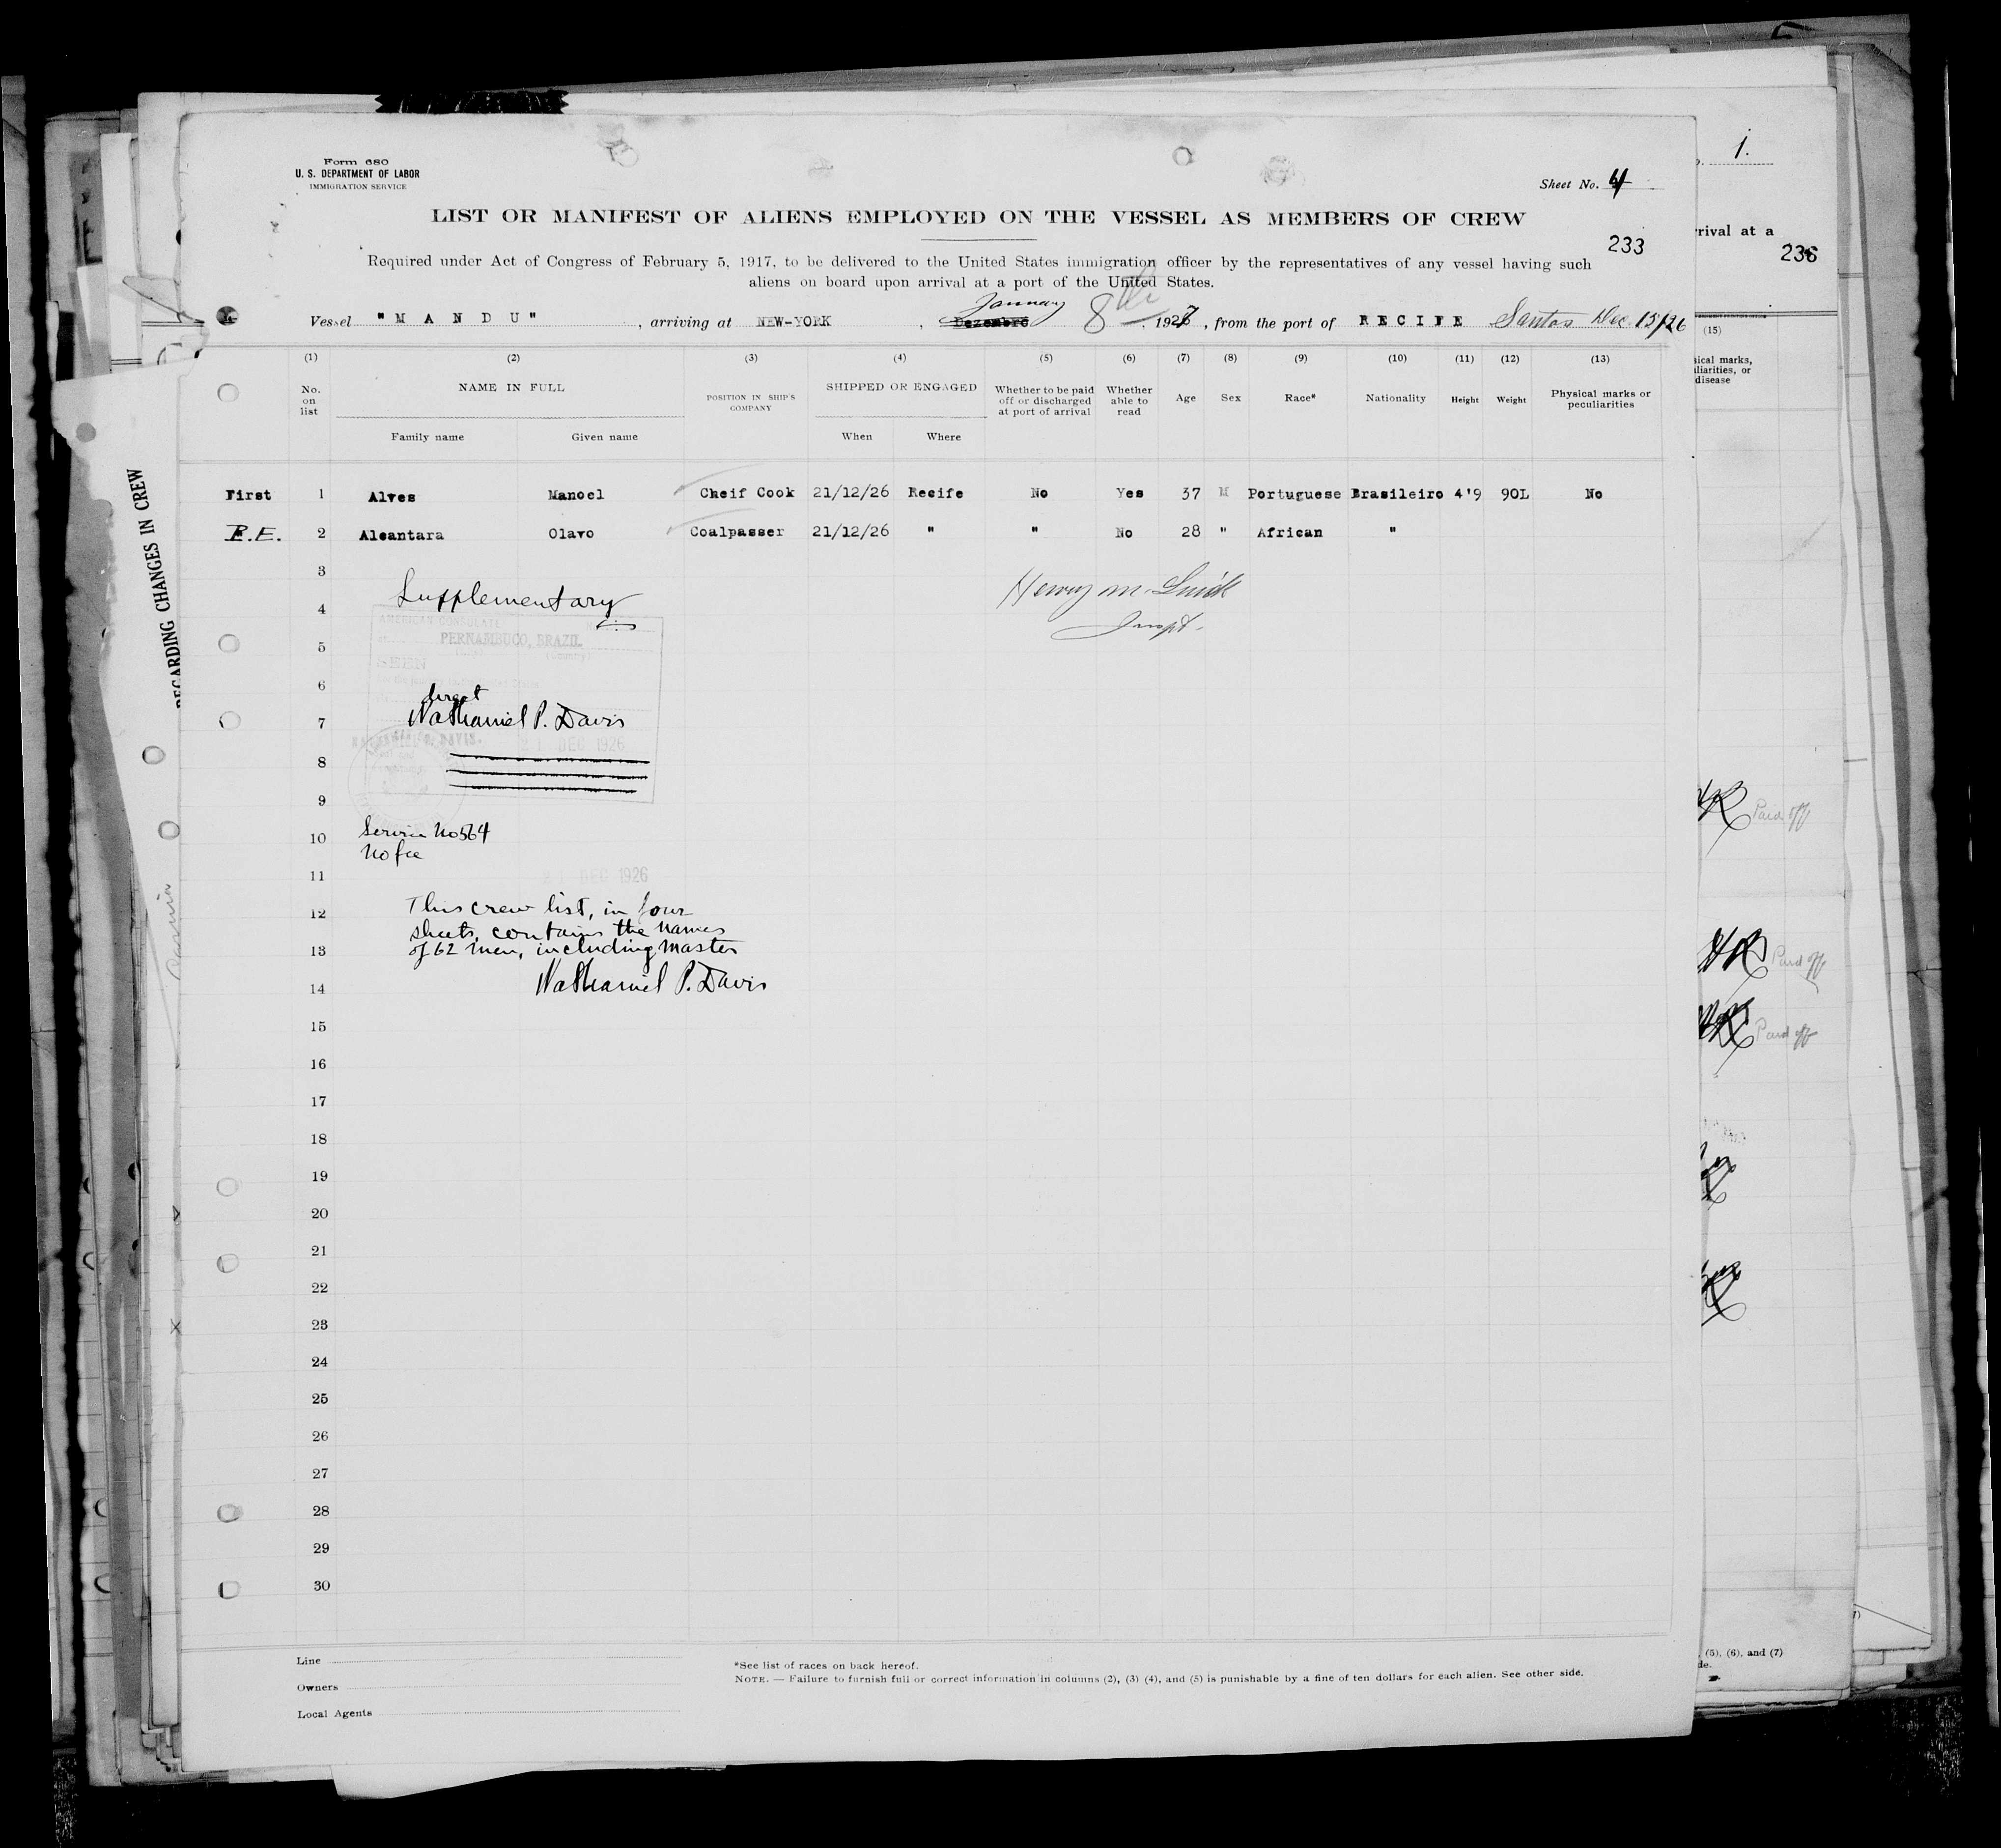 Form 680
U. S. DEPARTMENT OF LABOR
IMMIGRATION SERVICE
Sheet No. 4
1.
LIST OR MANIFEST OF ALIENS EMPLOYED ON THE VESSEL AS MEMBERS OF CREW
233
rival at a
236
Required under Act of Congress of February 5, 1917, to be delivered to the United States immigration officer by the representatives of any vessel having such
aliens on board upon arrival at a port of the United States.
Vessel "MANDU", arriving at NEW-YORK, Dezembro January 8th, 1927, from the port of RECIFE Santos Dec. 15/26
(1) (2) (3) (4) (5) (6) (7) (8) (9) (10) (11) (12) (13)
No. on list NAME IN FULL POSITION IN SHIP'S COMPANY SHIPPED OR ENGAGED Whether to be paid off or discharged at port of arrival Whether able to read Age Sex Race* Nationality Height Weight Physical marks or peculiarities
Family name Given name When Where
(15)
sical marks,
liarities, or
disease
First 1 Alves Manoel Cheif Cook 21/12/26 Recife No Yes 37 M Portuguese Brasileiro 4'9 90L No
P.E. 2 Alcantara Olavo Coalpasser 21/12/26 " " No 28 " African "
3
4 Supplementary
5
6
7
8
9
10
11
12
13
14
15
16
17
18
19
20
21
22
23
24
25
26
27
28
29
30
AMERICAN CONSULATE
PERNAMBUCO, BRAZIL
(Country)
SEEN
Nathaniel P. Davis
21 DEC 1926
Service No 564
No fee
21 DEC 1926
This crew list, in four
sheets, contains the names
of 62 men, including master
Nathaniel P. Davis
Henry M.
Inspt.
REGARDING CHANGES IN CREW
Paid off
Paid off
Paid off
Line
Owners
Local Agents
*See list of races on back hereof.
NOTE. — Failure to furnish full or correct information in columns (2), (3) (4), and (5) is punishable by a fine of ten dollars for each alien. See other side.
, (5), (6), and (7)
de.